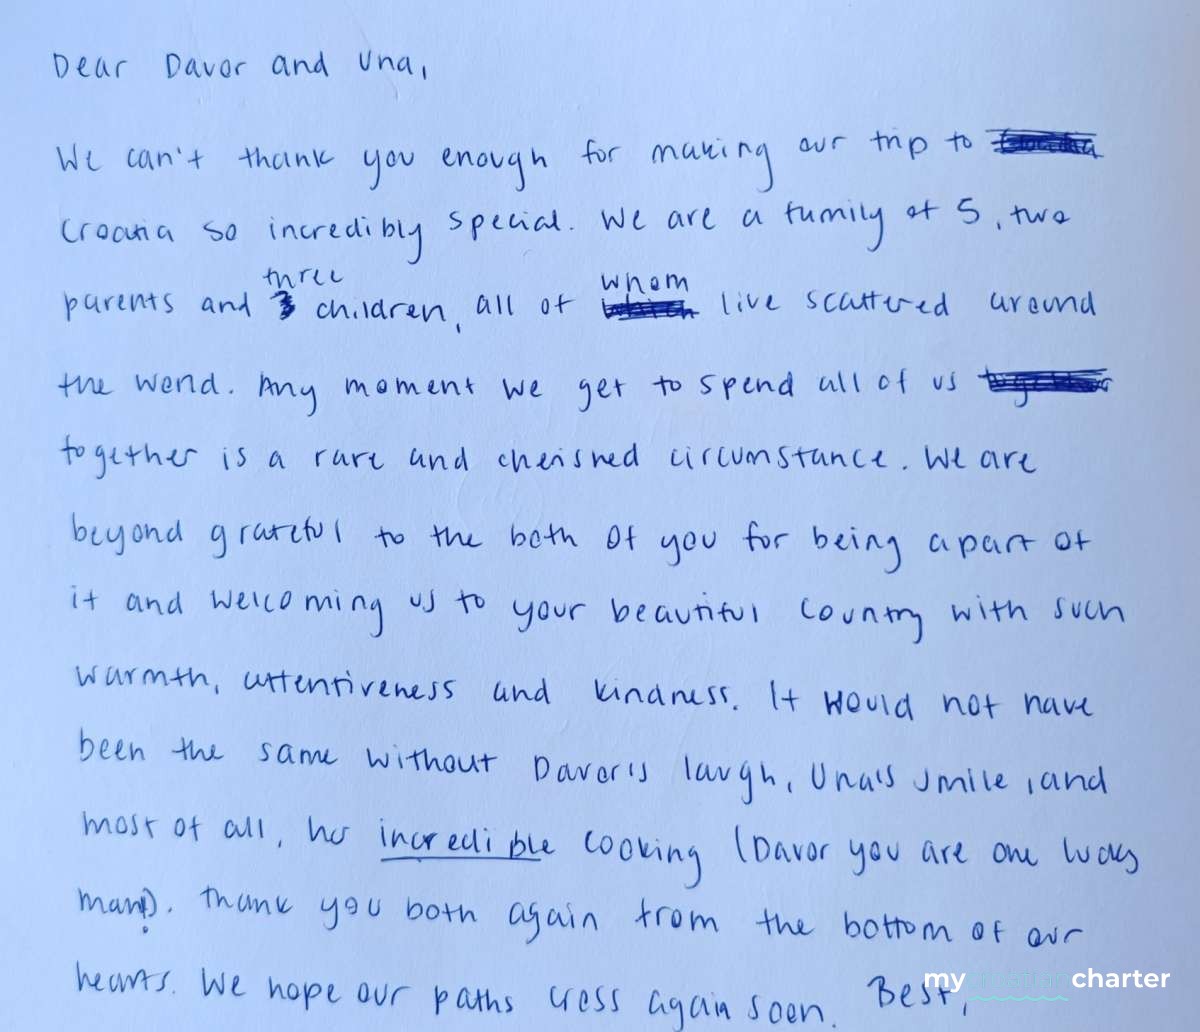 Dear Davor and Una,
We can't thank you enough for making our trip to
Croatia so incredibly special. We are a family of 5, two
three whom
parents and children, all of live scattered around
the world. Any moment we get to spend all of us
together is a rare and cherished circumstance. We are
beyond grateful to the both of you for being a part of
it and welcoming us to your beautiful country with such
warmth, attentiveness and kindness. It would not have
been the same without Davor's laugh, Una's smile, and
most of all, her incredible cooking (Davor you are one lucky
man!). Thank you both again from the bottom of our
hearts. We hope our paths cross again soon. Best,
my croatian charter